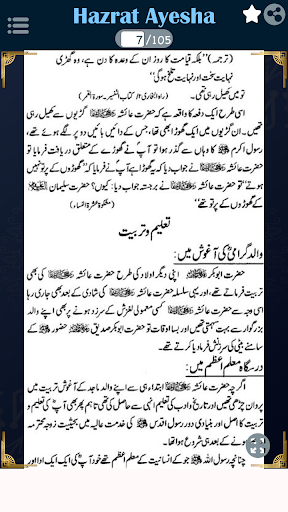 Hazrat Ayesha
7 /105
(ترجمہ) "بلکہ قیامت کا روز ان کے وعدہ کا دن ہے، وہ گھڑی
نہایت سخت اور نہایت تلخ ہوگی"
تو میں کھیل رہی تھی۔ (رواہ البخاری فی کتاب التفسیر سورۃ القمر)
ایک دفعہ کا واقعہ ہے کہ حضرت عائشہ گڑیوں سے کھیل رہی
تھیں۔ ان گڑیوں میں ایک گھوڑا بھی تھا، جس کے دائیں بائیں دو پر لگے ہوئے تھے،
رسول اکرم ﷺ کا وہاں سے گذر ہوا تو آپؐ نے گھوڑے کے متعلق دریافت فرمایا تو
حضرت عائشہ نے جواب دیا کہ گھوڑا ہے، آپؐ نے فرمایا کہ "گھوڑوں کے پر تو نہیں
ہوتے" تو حضرت عائشہ نے برجستہ جواب دیا "کیوں؟ حضرت سلیمان
کے گھوڑوں کے پر تو تھے" (مشکوٰۃ عشرۃ النساء)
تعلیم و تربیت
والد گرامی کی آغوش میں:
حضرت ابوبکر اپنی دیگر اولاد کی طرح حضرت عائشہ کی بھی
تربیت فرماتے تھے، اور یہی سلسلہ حضرت عائشہ کی شادی کے بعد بھی جاری رہا
اسی وجہ سے حضرت عائشہ کسی معمولی لغزش کے سرزد ہونے پر بھی اپنے والد
بزرگوار سے بہت سہمتی تھیں اور بسا اوقات تو حضرت ابوبکر صدیق حضور ﷺ کے
سامنے بیٹی کی سرزنش فرما دیا کرتے تھے۔
درسگاہ معلم اعظم میں:
اگرچہ حضرت عائشہ ابتداء ہی سے اپنے والد ماجد کے آغوش تربیت میں
پروان چڑھی تھیں اور تاریخ و ادب کی تعلیم انہی سے حاصل کی تھی تاہم پھر بھی آپؓ کی تعلیم و
تربیت کا اصل اور بنیادی دور رسول اقدس ﷺ کی خدمت عالیہ میں بحیثیت زوجہ محترمہ
ہونے کے بعد ہی شروع ہوا تھا۔
چنانچہ رسول اللہ ﷺ جو کہ انسانیت کے معلم اعظم تھے خود آپؓ کی ایک ایک ادا اور